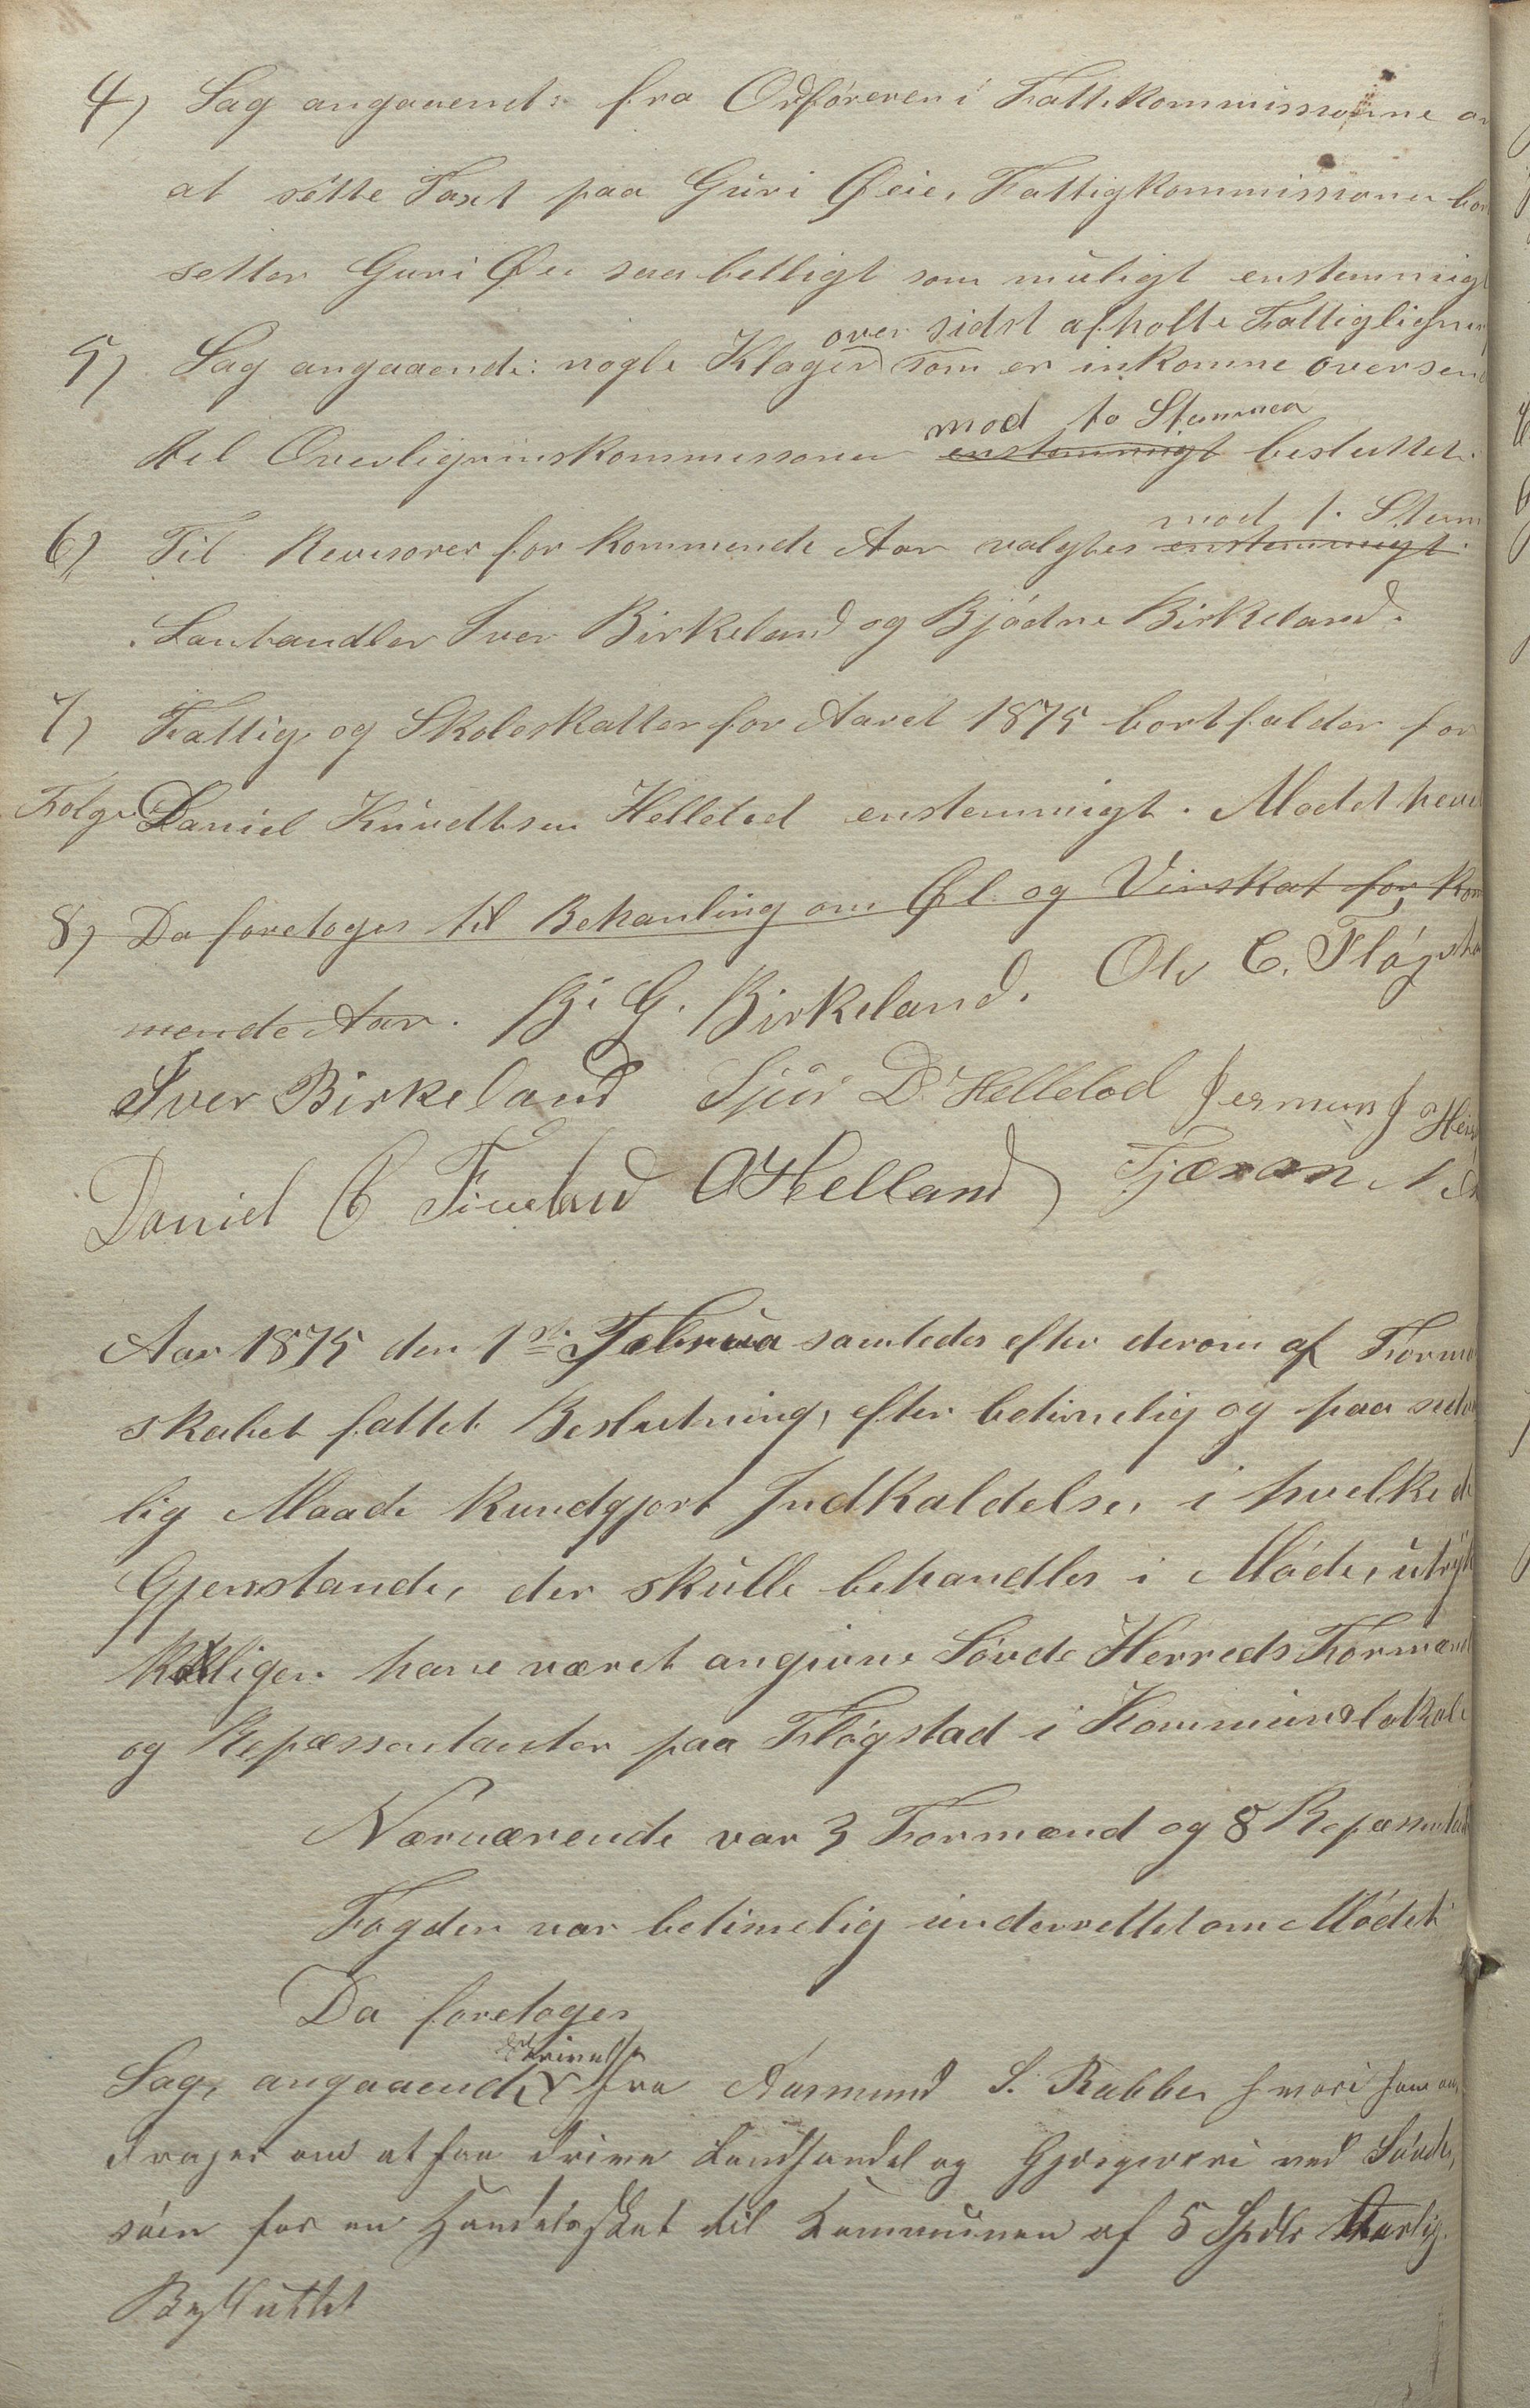 4) Sag angaaend: fra Ordføreren i Fattikommissonne o
at sette Taxt paa Guri Øeie, Fattigkommissonen bor
setter Guri Øie saa billigt som muligt enstemmigt
over sidst afholte Fattiglignin
5) Sag angaaende: nogle Klager som er inkomne oversen
mod to Stemmer
til Overligninskommissonen enstemmigt besluttet.
mod 1. Stem
6) Til Revisorer for kommende Aar valgtes enstemmigt
Lanhandler Iver Birkeland og Bjódne Birkeland.
7) Fattig og Skoleskatter for Aaret 1875 bortfalder for
Følge Daniel Knudtsen Hellelod enstemmigt. Mødet hevet
8) Da foretoges til Behanling om Øl og Vinskat for kom
mende Aar. B. G. Birkeland. Ole C. Flógsta
Iver Birkeland Sjur D. Hellelod Jermun J Hei
Daniel C Fiveland O Helland Tjæran N
Aar 1875 den 1ste Februa samledes efter derom af Forma
skabet fattet Beslutning, efter betimelig og paa sedvan
lig Maade kundgjort Indkaldelse, i hvilke d
Gjenstande, der skulle behandles i Móde, utryk
kelligen have været angivne Sóvde Herreds Formænd
og Repæssentanter paa Flógstad i Kommunelokale
Nærværende var 3 Formænd og 8 Repæssentant
Fogden var betimelig underrettet om Módet
Da foretoges
Skrivelse
Sag, angaaende fra Aasmund S. Rabbe, hvori han an
drager om at faa drive Landhandel og Gjæsgiveri ved Sóvde,
sóen for en Handelsskat til Kommunen af 5 Spdlr Aarlig.
Besluttet